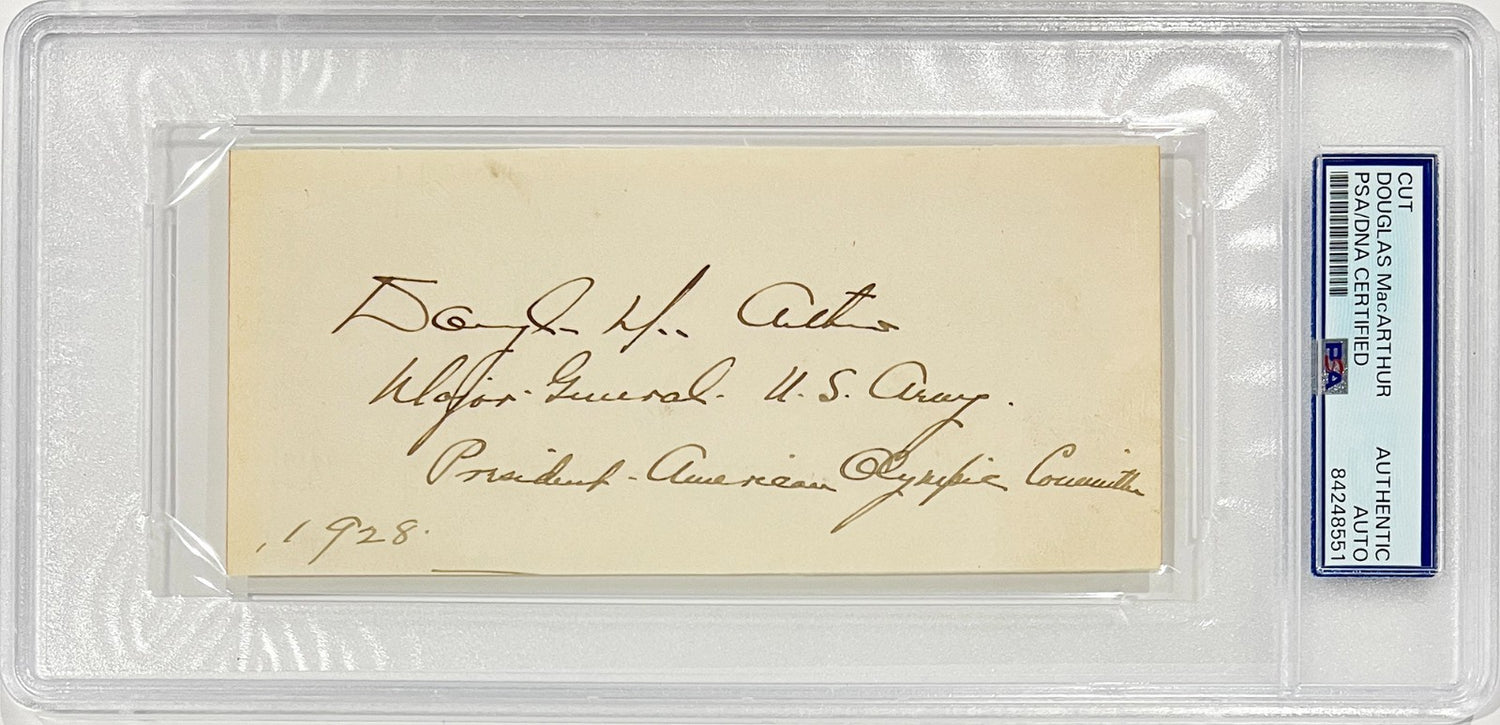 Douglas MacArthur
Major-General. U.S. Army.
President-American Olympic Committee
1928.
CUT
DOUGLAS MacARTHUR AUTHENTIC
PSA/DNA CERTIFIED AUTO
84248551
PSA